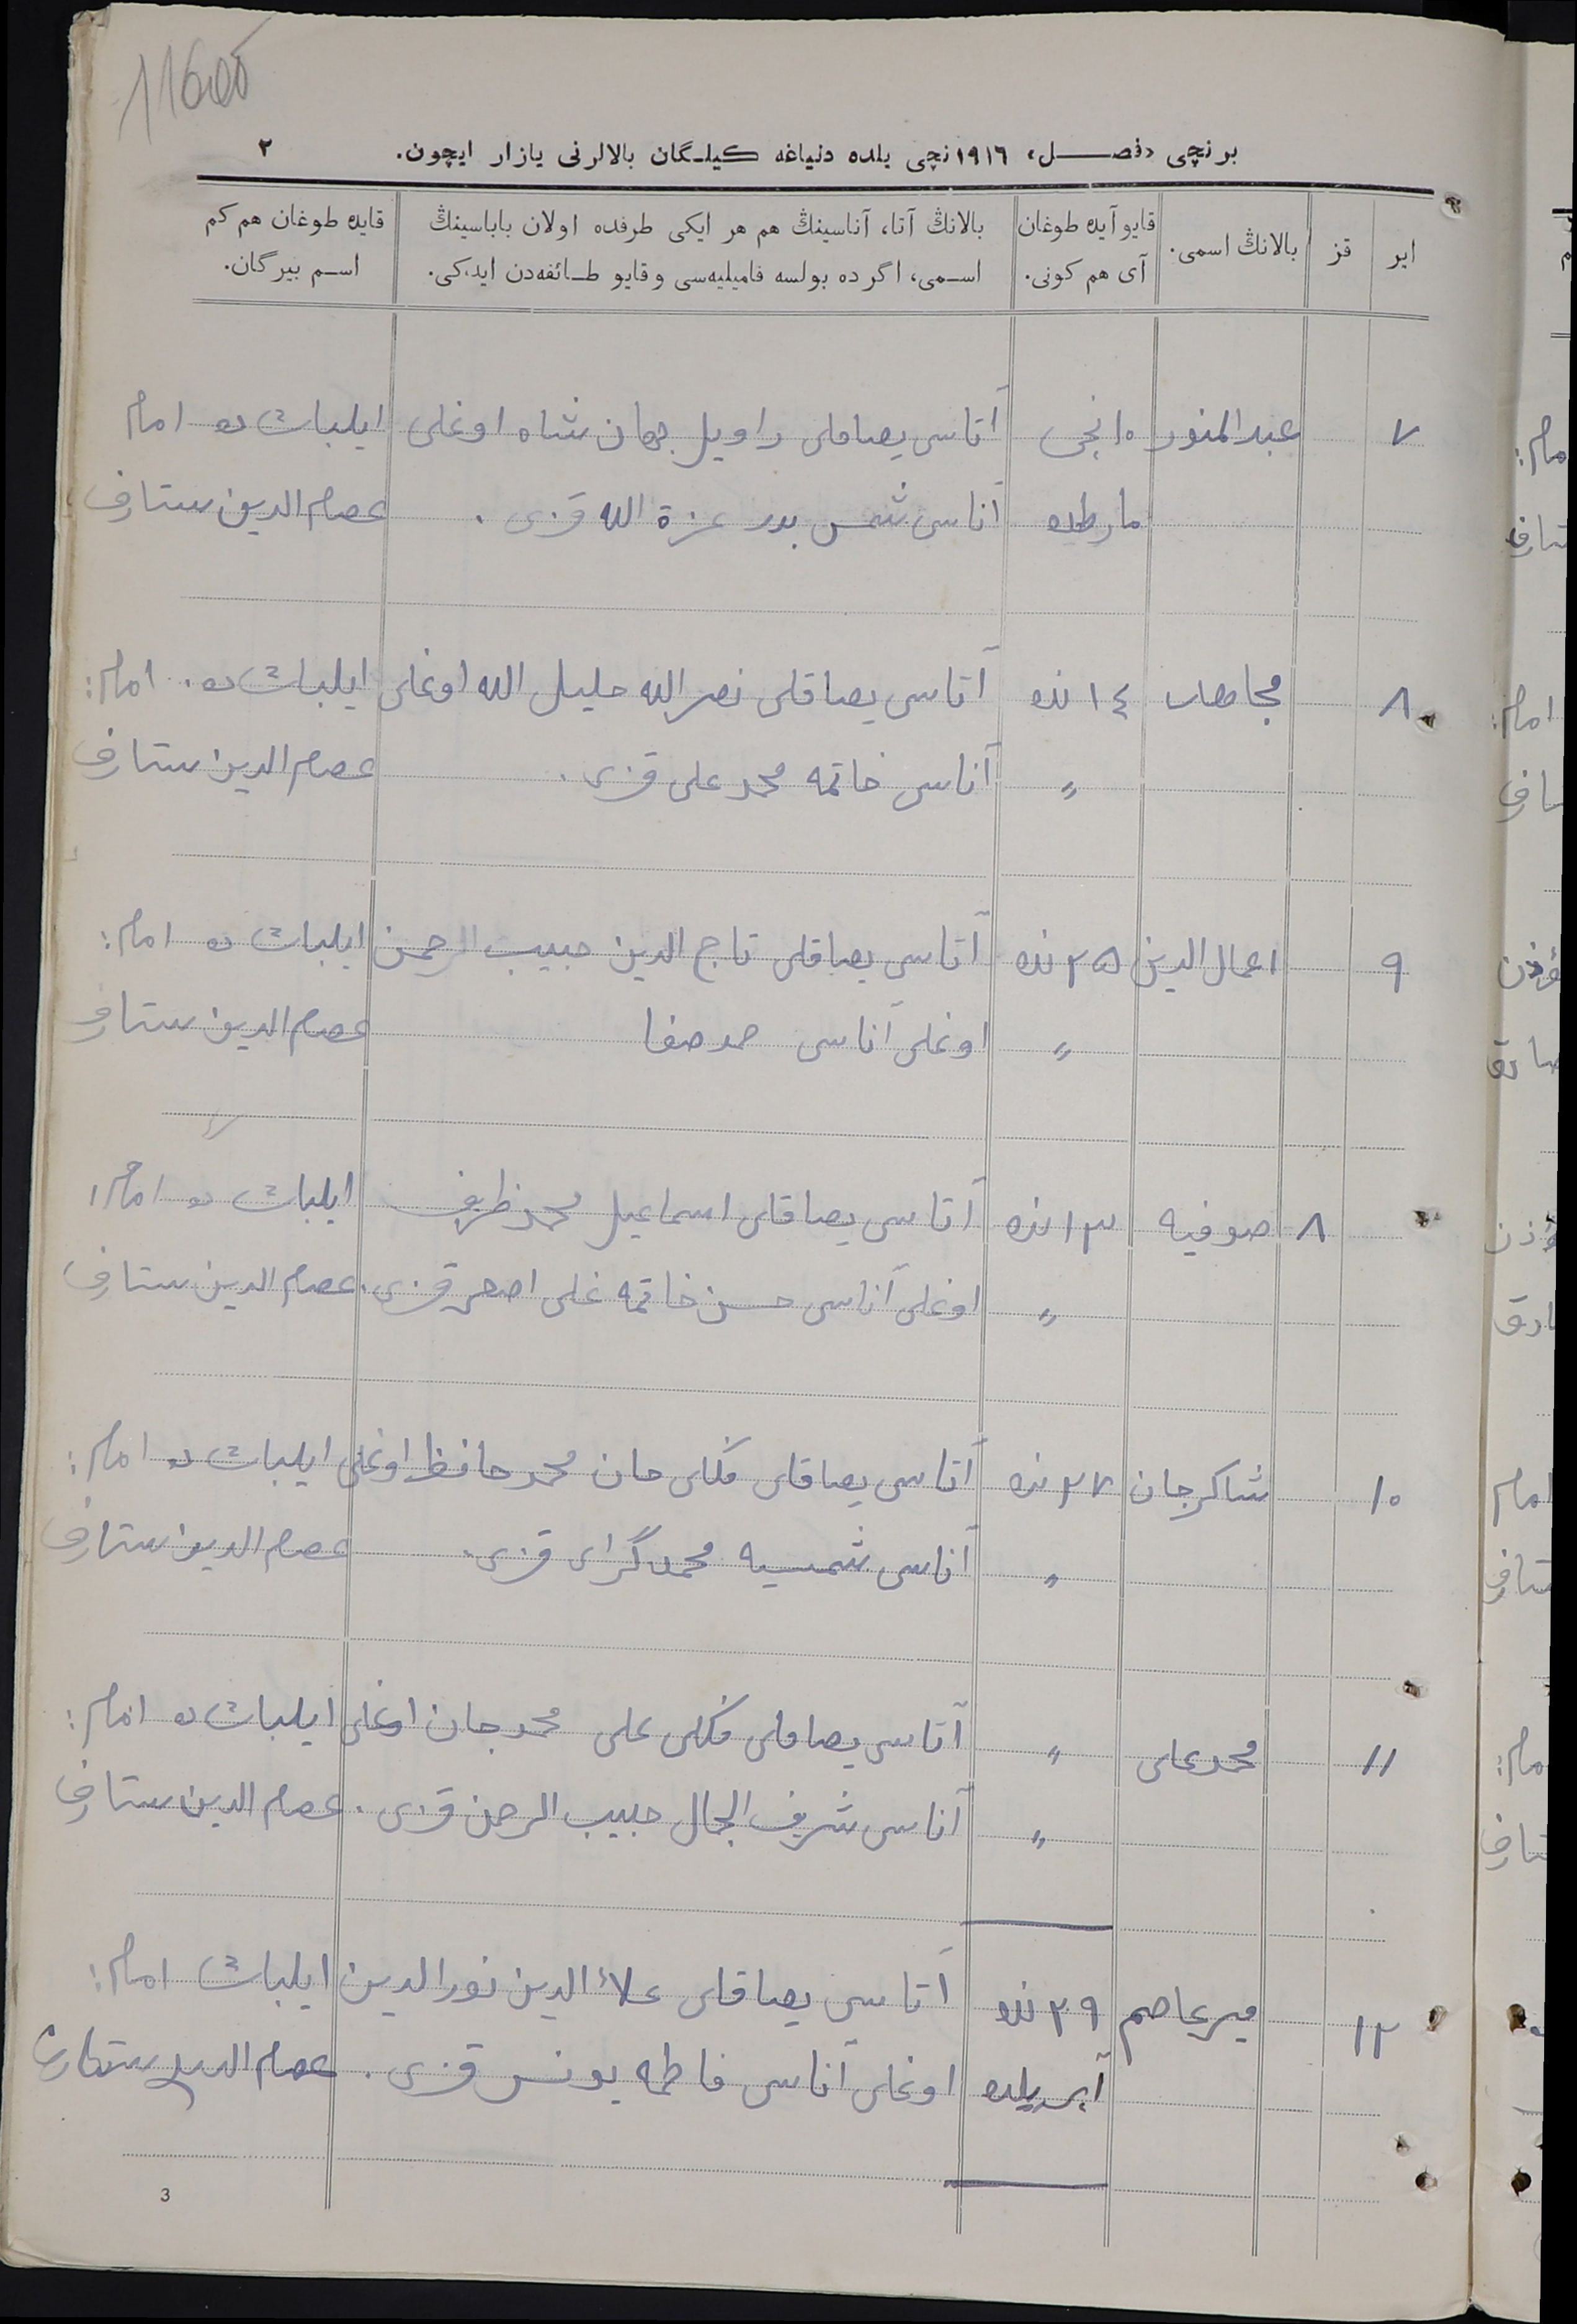 11600
برنچی «فصل» ۱۹۱٦ نچی یلده دنیاغه کیلگان بالالرنی یازار ایچون. ۲
ایر
قز
بالانڭ اسمی.
قایو آیده طوغان
آی هم کونی.
بالانڭ آتا، آناسینڭ هم هر ایکی طرفده اولان باباسینڭ
اسمی، اگرده بولسه فامیلیه‌سی و قایو طائفه‌دن ایدکی.
قایده طوغان هم کم
اسم بیرگان.
۷ عبدالمنور ۱۰نجی آتاسی یصاقلی راویل جهان شاه اوغلی ایلبات ده امام
مارطده آناسی شمس بدر عزة الله قزی. عصام الدین ستارف
۸ ۱٤ نده آتاسی یصاقلی نصرالله خلیل الله اوغلی ایلبات ده. امام:
〃 آناسی خاتمه محمد علی قزی. عصام الدین ستارف
۹ اعمال الدین ۲۵ نده آتاسی یصاقلی تاج الدین حبیب الرحمن ایلبات ده امام:
〃 اوغلی آناسی عصام الدین ستارف
۸ صوفیه ۱۳ نده آتاسی یصاقلی اسماعیل محمد ظریف ایلبات ده امام:
〃 اوغلی آناسی حسن خاتمه علی اصغر قزی. عصام الدین ستارف
۱۰ شاکرجان ۲۷ نده آتاسی یصاقلی جان محمد حافظ اوغلی ایلبات ده امام:
〃 آناسی شمسیه محمدگرای قزی. عصام الدین ستارف
۱۱ محمد علی 〃 آتاسی یصاقلی علی محمد جان اوغلی ایلبات ده امام:
〃 آناسی شریف الجمال حبیب الرحمن قزی. عصام الدین ستارف
۱۲ میرعاصم ۲۹ نده آتاسی یصاقلی علاء الدین نورالدین ایلبات امام:
آپریلده اوغلی آناسی فاطمه یونس قزی. عصام الدین ستارف
3